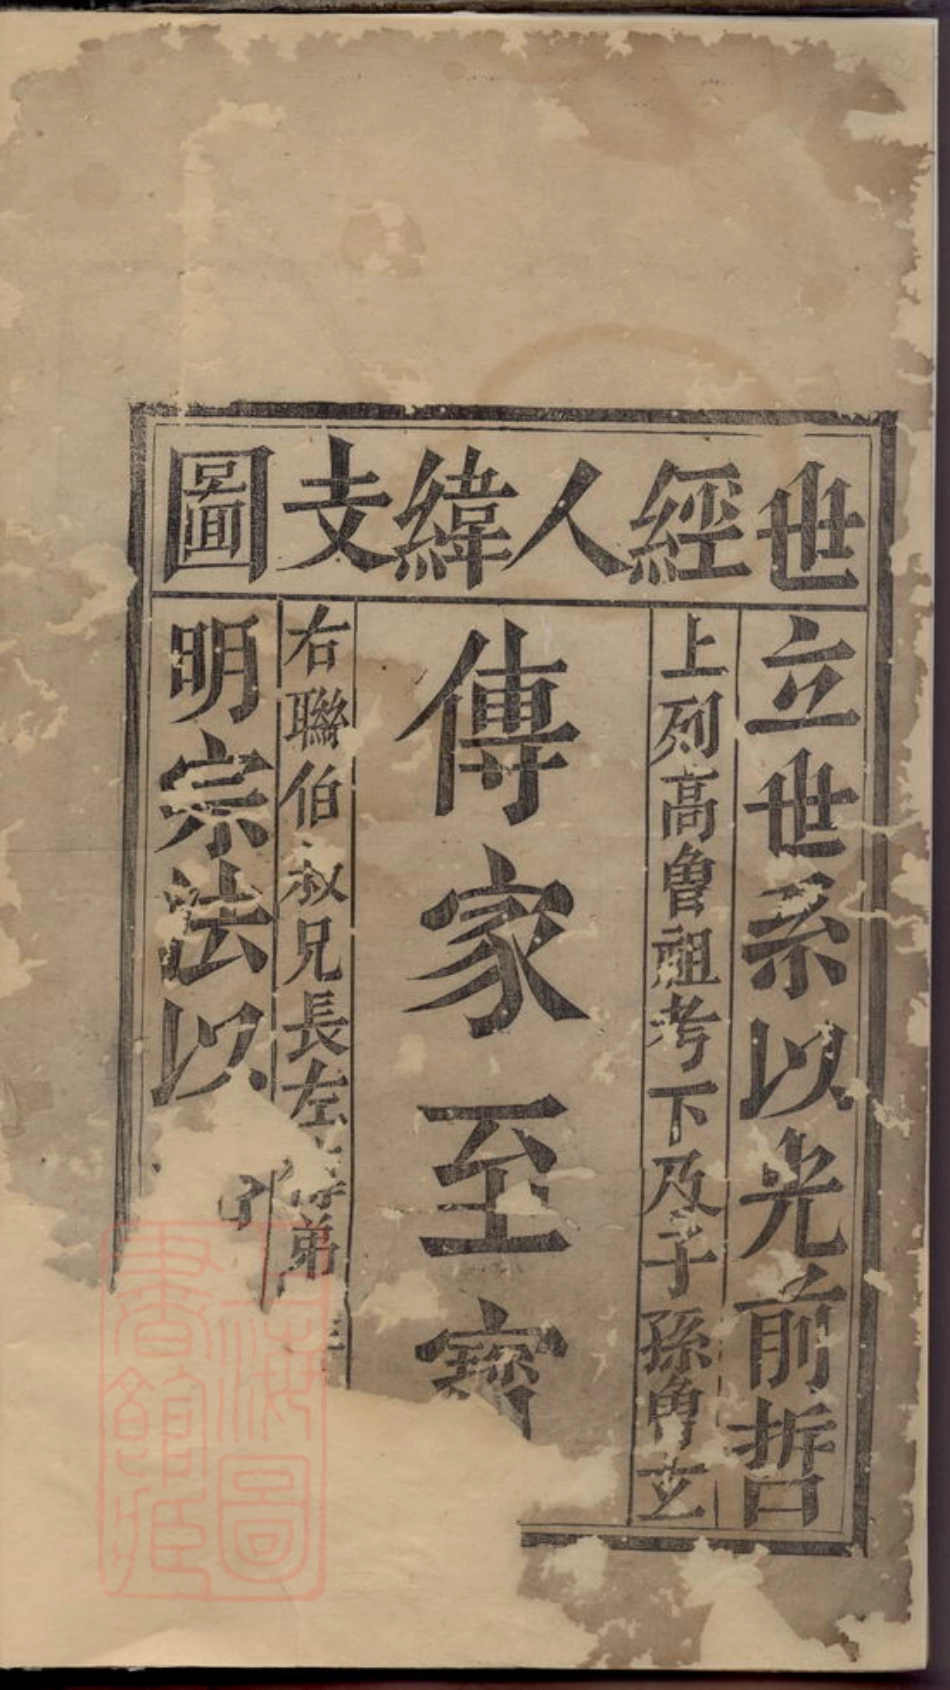 世經人緯支圖
立世系以光前哲
上列高曾祖考下及子孫曾玄
傳家至寶
右聯伯叔兄長左
弟
明宗法以
上海圖
書館藏